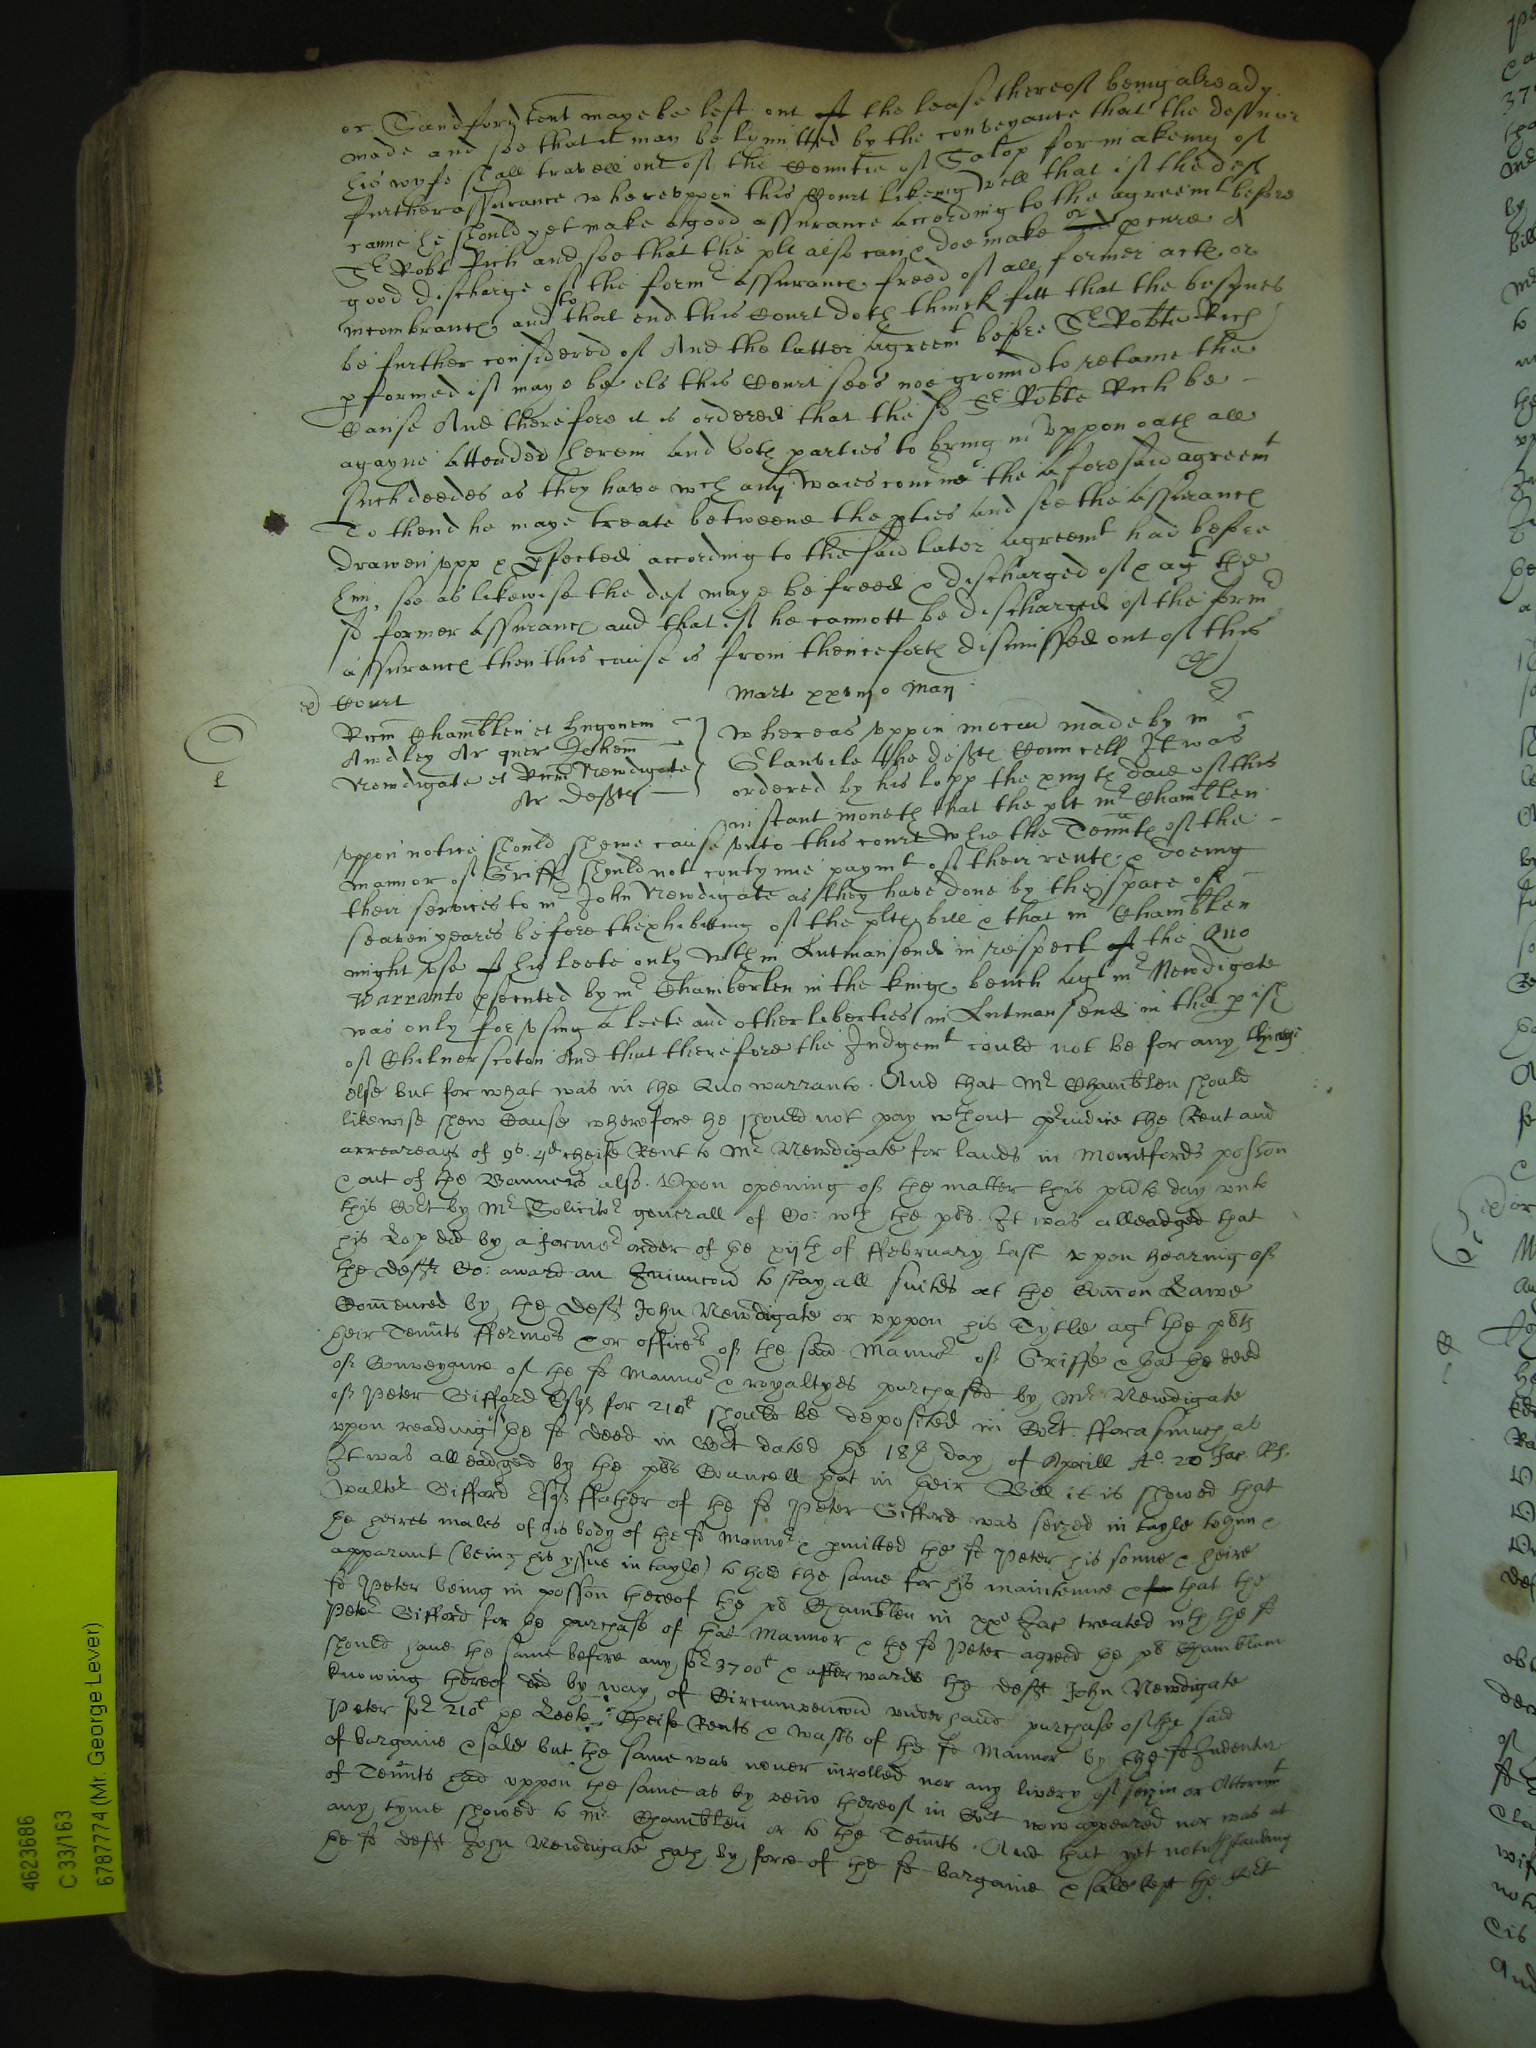 or Sandford tent maye be left out the lease thereof being already
made and soe that it may be lymitted by the conveyance that the deft nor
his wyfe shall travell out of the Countie of Salop for makeing of
further assurance whereuppon this Court likeing well that if the deft
came he should yet make a good assurance according to the agreemt before
Sr Robt Rich and soe that the plt also can & doe make or pcure a
good discharge of the formr assurance freed of all former actes or
incombrances and to that end this Court doth thinck fitt that the busynes
be further considered of And the latter agreemt before Sr Robte Rich
pformed if maye be els this Court sees noe ground to retaine the
Cause And therefore it is ordered that the sd Sr Robte Rich be
agayne attended herein and both parties to bring in uppon oath all
such deedes as they have wch any waies concerne the aforesaid agreemt
To thend he maye treate betweene the pties and see the assurance
drawen upp & pfected according to the said later agreemt had before
him, soe as likewise the deft maye be freed & discharged of & agt the
sd former assurance and that if he cannott be discharged of the formr
assurance then this cause is from thenceforth dismissed out of this
Court
Mart xxviijo Maij
Ricm Chamblen et Hugonem
Audley Ar quer Johem
Newdigate et Ricm Newdigate
Ar deftes
Whereas uppon mocon made by mr
Glanvile the deftes Councell It was
ordered by his lopp the xiijth daie of this
instant moneth that the plt mr Chamblen
uppon notice should shewe cause unto this court whie the Tennts of the
mannor of Griff should not contynue paymt of their rentes & doeing
their services to mr John Newdigate as they have done by the space of
seaven yeares before thexhibiting of the pltes bill & that mr Chamblen
might use his leete only wthin Lutmansend in respect the Quo
Warranto psecuted by mr Chamberlen in the kinges bench agt mr Newdigate
was only for using a leete and other liberties in Lutmansend in the pish
of Chilverscoton And that therefore the Judgemt could not be for any thinge
else but for what was in the Quo warranto. And that Mr Chamblen should
likewise shew Cause wherefore he should not pay wthout priudice the Rent and
arrearages of 9s. 4d cheife Rent to Mr Newdigate for lands in Mountfords posson
& out of the Banners also. Upon opening of the matter this psnte day unto
this Cort by Mr Solicitor generall of Co: wth the plts. It was alleadged that
his Lop did by a former order of the xijth of ffebruary last upon hearing of
the defts Co: award an Iniunccon to stay all suites at the Comon Lawe
Comenced by the deft John Newdigate or uppon his Tytle agt the plts
their Tennts ffermors & or officers of the said Mannor of Griffe & that the deed
of Conveyance of the sd Mannor & royaltyes purchased by Mr Newdigate
of Peter Gifford Esqr for 210l should be deposited in Cort. fforasmuch as
upon reading the sd deed in Cort dated the 18th day of Aprill Ao. 20 Jac. Rs.
It was alleadged by the plts Councell that in their Bill it is shewed that
Walter Gifford Esqr ffather of the sd Peter Gifford was seized in tayle to him &
the heires males of his body of the sd Mannor & pmitted the sd Peter his sonne & heire
apparant (being his yssue in tayle) to hold the same for his maintennce & that the
sd Peter being in posson thereof the plt Chamblen in xxo Jac treated wth the sd
Peter Gifford for the purchase of that Mannor & the sd Peter agreed the plt Chamblen
should have the same before any for 3700l & afterwards the deft John Newdigate
knowing thereof did by way of Circumvencon underhand purchase of the said
Peter for 210l the Leete Cheife Rents & wasts of the sd Mannor by the sd Indenture
of bargaine & sale but the same was never inrolled nor any livery of seizin or Attornmt
of Tennts had uppon the same as by veiw thereof in Cort now appeared nor was at
any tyme shewed to Mr Chamblen or to the Tennts. And that yet notwthstanding
the sd deft John Newdigate hath by force of the sd bargaine & sale kept the Cort
4623686
C 33/163
6787774 (Mr. George Lever)